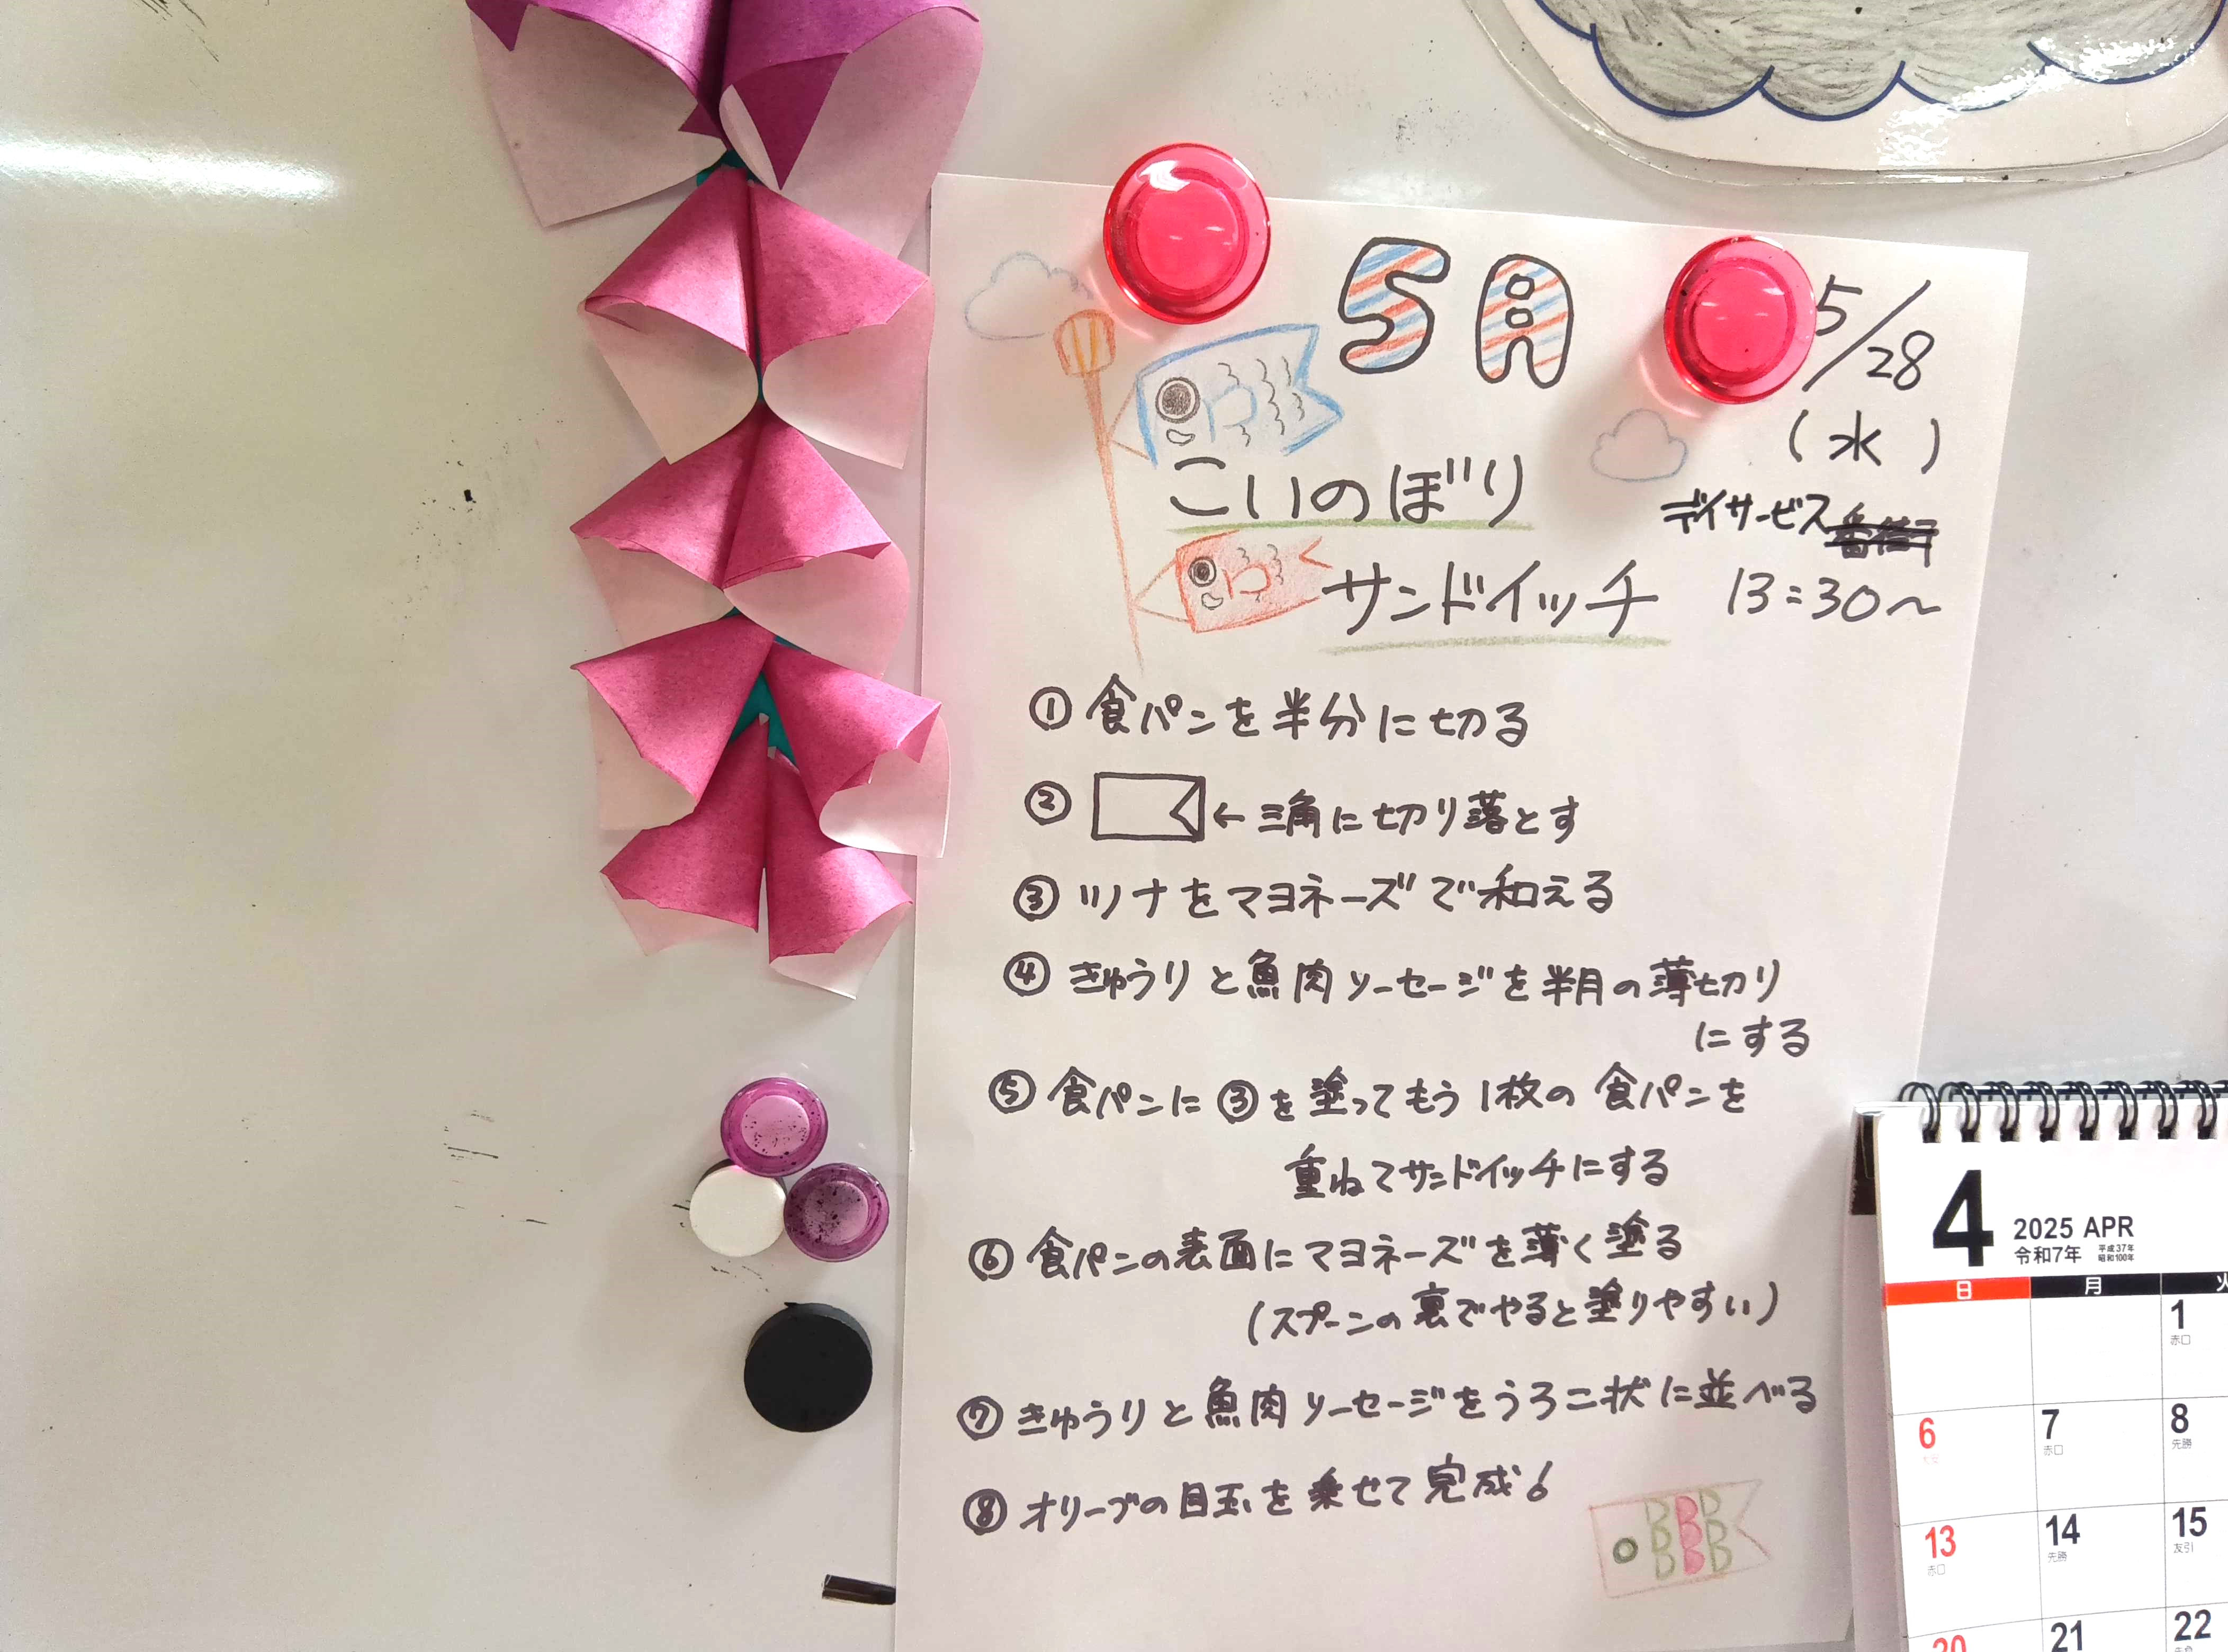 5月
5/28
(水)
こいのぼり
デイサービス
サンドイッチ
13:30〜
① 食パンを半分に切る
② ←三角に切り落とす
③ ツナをマヨネーズで和える
④ きゅうりと魚肉ソーセージを半月の薄切り
にする
⑤ 食パンに③を塗ってもう1枚の食パンを
重ねてサンドイッチにする
⑥ 食パンの表面にマヨネーズを薄く塗る
(スプーンの裏でやると塗りやすい)
⑦ きゅうりと魚肉ソーセージをうろこ状に並べる
⑧ オリーブの目玉を乗せて完成!
4
2025 APR
令和7年
平成37年
昭和100年
日 月 火
1
赤口
6 7 8
赤口 先勝
13 14 15
赤口 先勝 友引
20 21 22